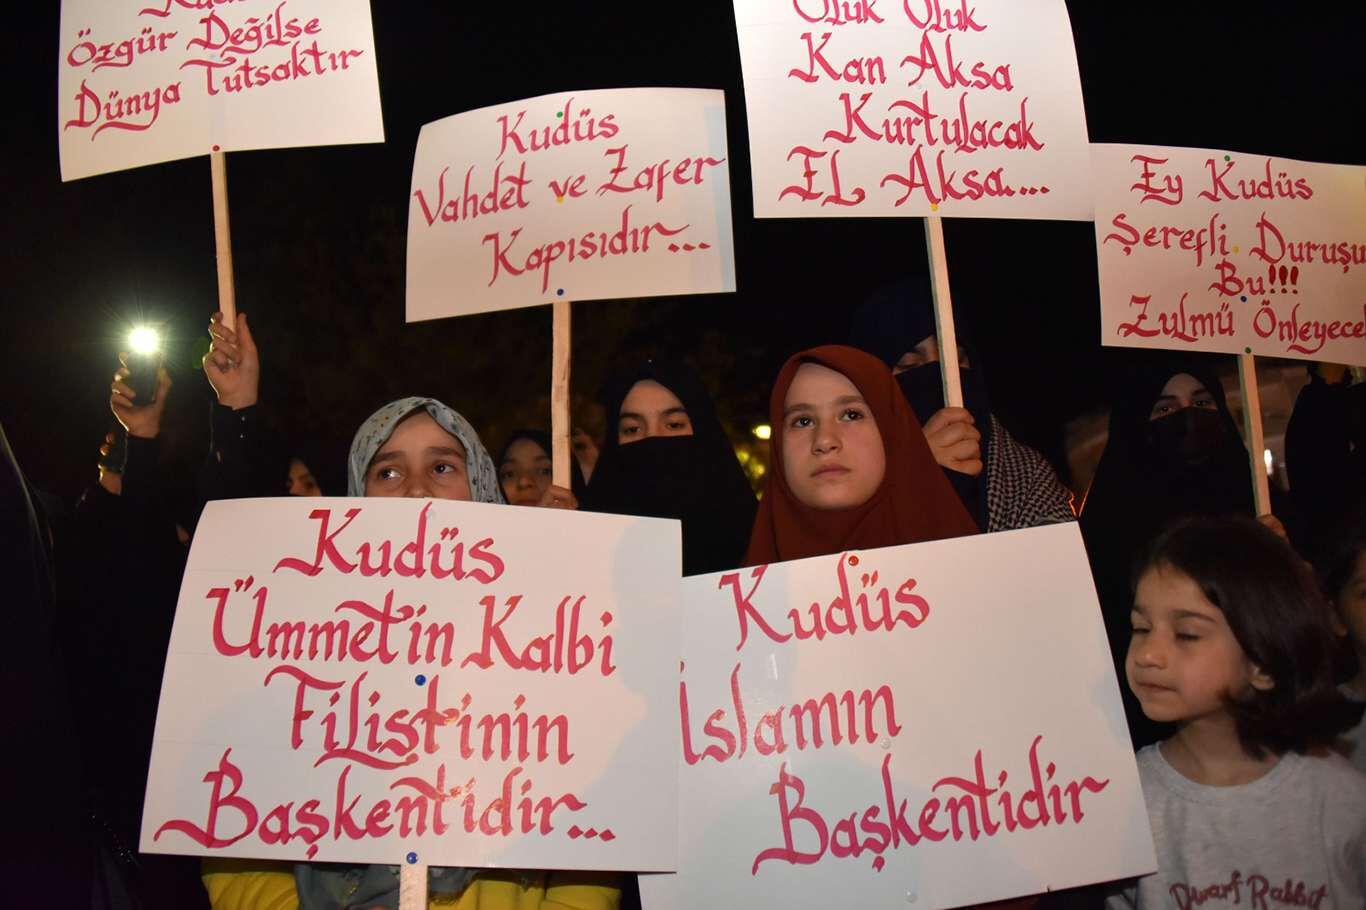 Özgür Değilse
Dünya Tutsaktır
Kudüs
Vahdet ve Zafer
Kapısıdır...
Oluk Oluk
Kan Aksa
Kurtulacak
EL Aksa...
Ey Kudüs
Şerefli Duruşu
Bu!!!
Zulmü Önleyecek
Kudüs
Ümmet'in Kalbi
Filistinin
Başkentidir...
Kudüs
İslamın
Başkentidir
Dwarf Rabbit